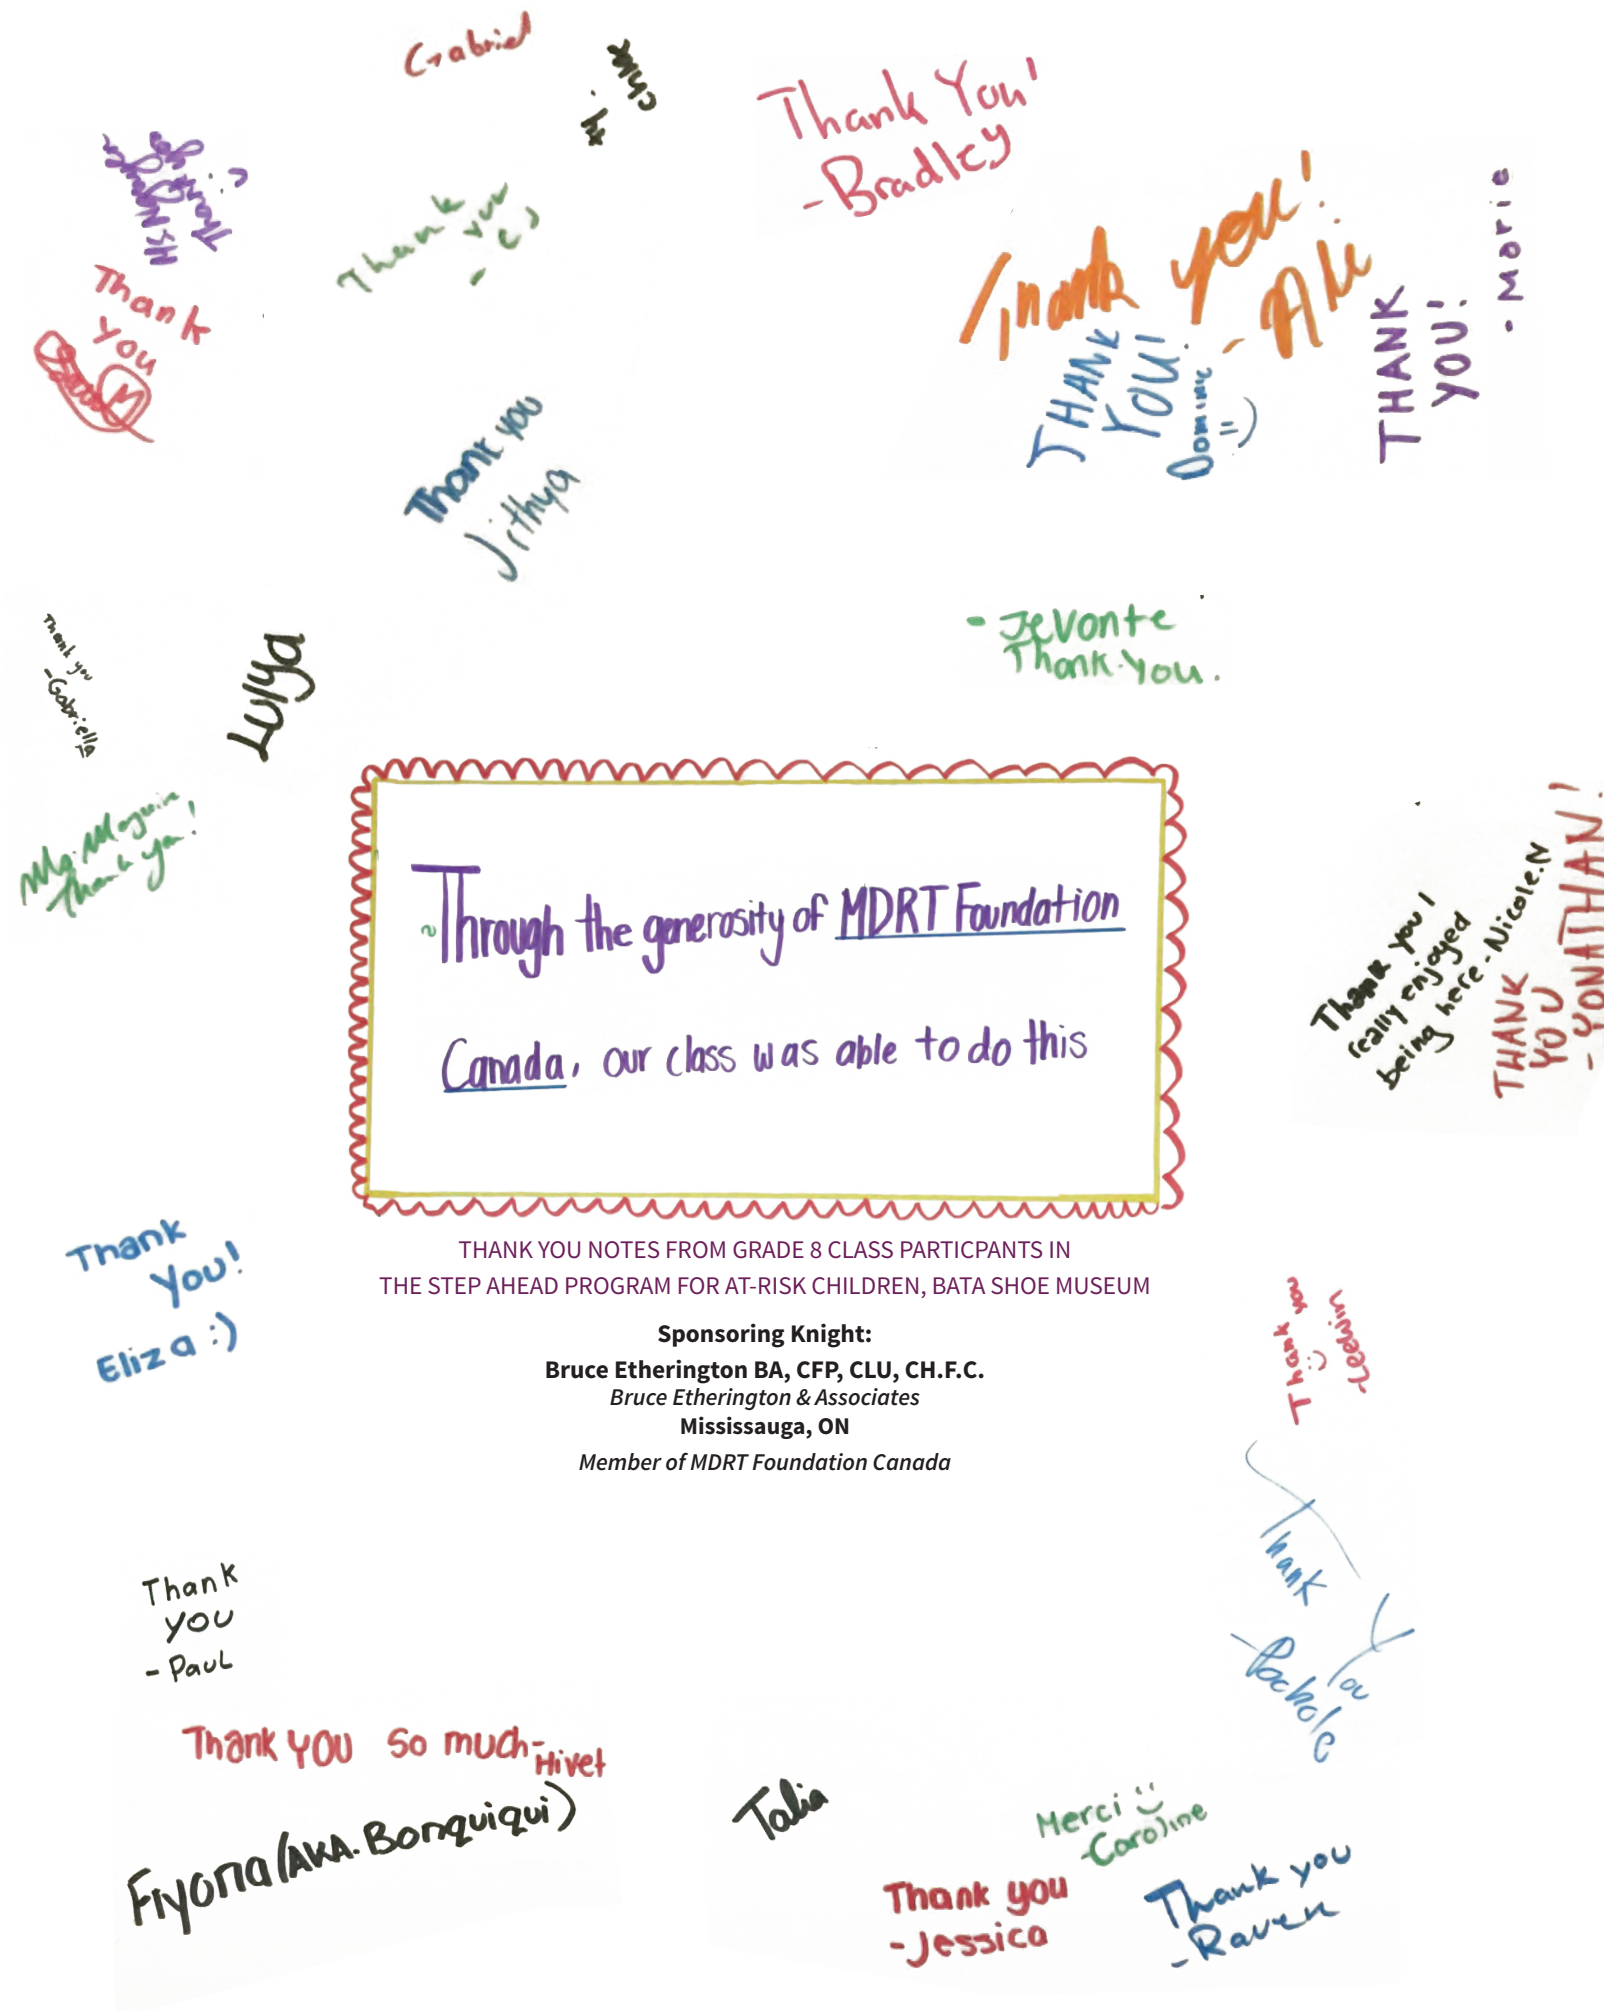 Gabriel
Thank You!
-Bradley
Thank
you
- CJ
Thank you!
- Morie
Thank
you
THANK
YOU!
Dominic
=)
THANK
YOU!
Thank you
Jithya
- JeVonte
Thank You.
Thank you
-Gabriella
Lulya
Ms. Maguire
Thank you!
Through the generosity of MDRT Foundation
Canada, our class was able to do this
Thank you I
really enjoyed
being here -Nicole.N
THANK
YOU
- YONATHAN!
Thank
You!
Eliza :)
THANK YOU NOTES FROM GRADE 8 CLASS PARTICPANTS IN
THE STEP AHEAD PROGRAM FOR AT-RISK CHILDREN, BATA SHOE MUSEUM
Sponsoring Knight:
Bruce Etherington BA, CFP, CLU, CH.F.C.
Bruce Etherington & Associates
Mississauga, ON
Member of MDRT Foundation Canada
Thank you
Thank
You
Thank
you
- Paul
Thank you so much-Hivet
Fiyona (AKA. Bonquiqui)
Talia
Merci
-Caroline
Thank you
-Jessica
Thank you
-Raven